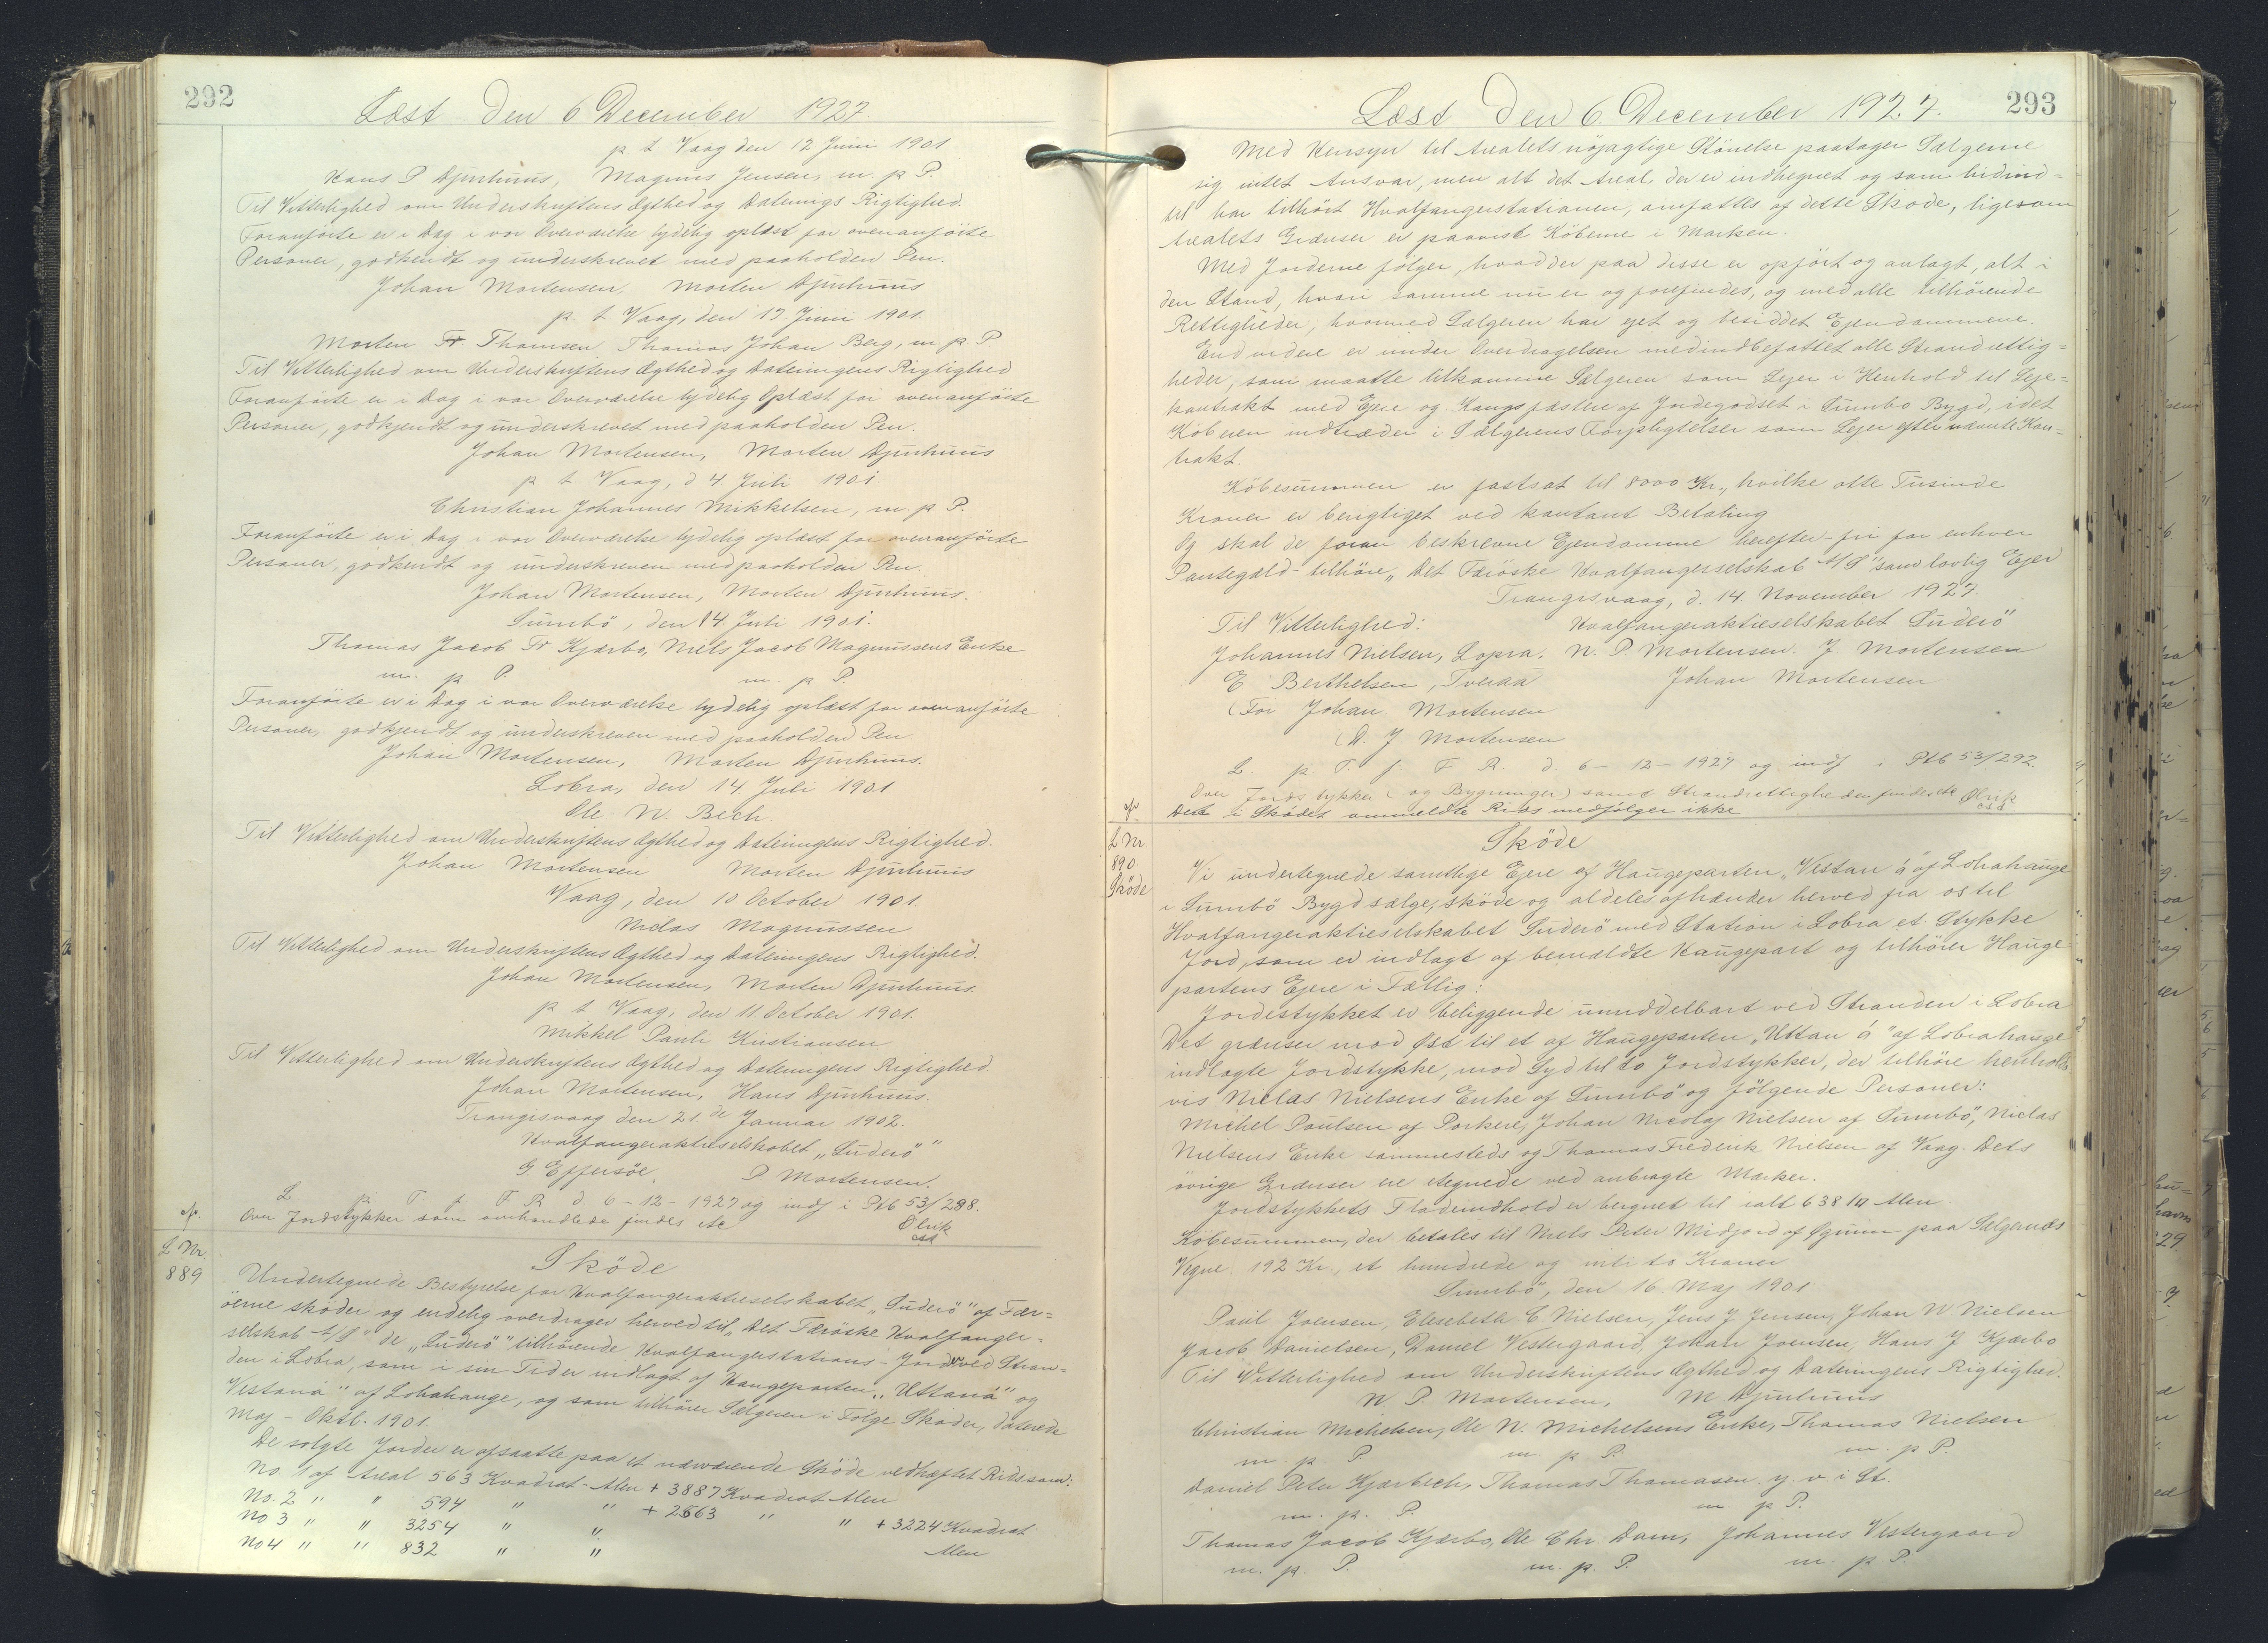 292
Læst den 6 December 1927.
p t Vaag den 12 Juni 1901
Hans P Djurhuus, Magnus Jensen, m. p P.
Til Vitterlighed om Underskriftens Ægthed og Daterings Rigtighed.
Foranförte er i Dag i vor Overværelse lydelig oplæst for ovenanförte
Personer, godkendt og underskrevet med paaholden Pen.
Johan Mortensen, Morten Djurhuus
p. t Vaag, den 17. Juni 1901.
Morten Fr. Thomsen Thomas Johan Berg, m. p P
Til Vitterlighed om Underskriftens Ægthed og Dateringens Rigtighed
Foranförte er i Dag i vor Overværelse lydelig Oplæst for ovenanförte
Personer, godkjendt og underskrevet med paaholden Pen.
Johan Mortensen, Morten Djurhuus
p t Vaag, d 4 Juli 1901.
Christian Johannes Mikkelsen, m. p P.
Foranförte er i Dag i vor Overværelse lydelig oplæst for ovenanförte
Personer, godkendt og underskreven med paaholden Pen.
Johan Mortensen, Morten Djurhuus.
Sumbö, den 14. Juli 1901.
Thomas Jacob Fr Kjærbo, Niels Jacob Magnussens Enke
m. p. P. m. p P.
Foranförte er i Dag i vor Overværelse lydelig oplæst for ovenanförte
Personer, godkjendt og underskreven med paaholden Pen.
Johan Mortensen, Morten Djurhuus.
Lobra, den 14 Juli 1901
Ole N. Bech.
Til Vitterlighed om Underskriftens Ægthed og Dateringens Rigtighed.
Johan Mortensen Morten Djurhuus
Vaag, den 10 October 1901.
Niclas Magnussen
Til Vitterlighed om Underskriftens Ægthed og Dateringens Rigtighed.
Johan Mortensen, Morten Djurhuus.
p t Vaag, den 11 October 1901.
Mikkel Pauli Kristiansen
Til Vitterlighed om Underskriftens Ægthed og Dateringens Rigtighed
Johan Mortensen, Hans Djurhuus.
Trangisvaag den 21. de Januar 1902.
Hvalfangeraktieselskabet "Suderö"
G Effersöe, P Mortensen.
L p. T. f. F R d 6 - 12 - 1927 og indf i Ptb 53/288.
Over Jordstykker som omhandlede findes etc
Ølrik
cst
L Nr.
889
Sköde
Undertegnede Bestyrelse for Hvalfangeraktieselskabet "Suderö" af Fær=
öerne sköder og endelig overdrager herved til "Det Færöske Hvalfanger-
selskab A/S" de "Suderö" tilhörende Hvalfangerstations-Jorder ved Stran=
den i Lobra, som i sin Tid er indlagt af Haugeparten "Uttaná" og
Vestaná" af Lobahauge, og som tilhörer Sælgeren i Fölge Sköder, daterede
Maj - Oktb. 1901.
De solgte Jorder er afsaatte paa et nærværende Sköde vedhæftet Rids som:
No. 1 af Areal 563 Kvadrat-Alen + 3887 Kvadrat Alen
No. 2 " " 594 " " + 2563 " " + 3224 Kvadrat
No 3 " " 3254 " " Alen
No 4 " " 832 " "
293
Læst den 6 December 1927.
Med Hensyn til Arealets nöjagtige Störrelse paatager Sælgerne
sig intet Ansvar, men alt det Areal, der er indhegnet og som hidind=
til har tilhört Hvalfangerstationen, omfattes af dette Sköde, ligesom
Arealets Grænser er paavist Köberne i Marken.
Med Jorderne fölger, hvad der paa disse er opfört og anlagt, alt i
den Stand, hvori samme nu er og forefindes, og med alle tilhörende
Rettigheder, hvormed Sælgeren har ejet og besiddet Ejendommene.
Endvidere er under Overdragelsen medindbefattet alle Strandrettig=
heder, som maatte tilkomme Sælgeren som Lejer i Henhold til Leje=
kontrakt med Ejere og Kongsfæstere af Jordegodset i Sumbo Bygd, idet
Köberen indtræder i Sælgerens Forpligtelser som Lejer efter nævnte Kon=
trakt.
Köbesummen er fastsat til 8000 Kr., hvilke otte Tusinde
Kroner er berigtiget ved kontant Betaling
Og skal de foran beskrevne Ejendomme herefter - fri for enhver
Pantegæld - tilhöre "Det Færöske Hvalfangerselskab A/S" som lovlig Ejer
Trangisvaag, d. 14. November 1927.
Til Vitterlighed: Hvalfangeraktieselskabet Suderö"
Johannes Nielsen, Lopra. N. P Mortensen. J. Mortensen
E Berthelsen, Tveraa Johan Mortensen
(For Johan Mortensen
(D. J Mortensen
L. p T. f. F R. d. 6 - 12 - 1927 og indf i Ptb 53/292.
Over Jordstykker (og Bygninger) samt Strandrettigheder findes etc Ølrik
Det i Sködet ommeldte Rids medfölger ikke
cst
L Nr
890
Sköde
Sköde
Vi undertegnede samtlige Ejere af Haugeparten "Vestan á" af Lobahauge
i Sumbö Bygd sælge, sköde og aldeles afhænder herved fra os til
Hvalfangeraktieselskabet Suderö med Station i Lobra et Stykke
Jord, som er indlagt af bemeldte Haugepart og tilhörer Hauge
partens Ejere i Fællig:
Jordstykket er beliggende umiddelbart ved Stranden i Lobra
Det grænser mod Øst til et af Haugeparten "Uttan á" af Lobrahauge
indlagte Jordstykke, mod Syd til to Jordstykker, der tilhöre henholds
vis Niclas Nielsens Enke af Sumbö og fölgende Personer:
Michel Poulsen af Porkere, Johan Nicolaj Nielsen af Sumbö, Niclas
Nielsens Enke sammesteds og Thomas Frederik Nielsen af Vaag. Dets
övrige Grænser ere tegnede ved anbragte Mærker.
Jordstykkets Fladeindhold er beregnet til ialt 638 □ Alen
Köbesummen, der betales til Niels Peter Midjord af Øgnim paa Sælgernes
Vegne 192 Kr., et hundrede og niti to Kroner
Sumbö, den 16. Maj 1901
Paul Joensen, Elesebeth C. Nielsen, Jens J Jensen, Johan N Nielsen
Jacob Danielsen, Daniel Vestergaard, Johan Joensen, Hans J Kjærbo
Til Vitterlighed om Underskriftens Ægthed og Dateringens Rigtighed.
N. P. Mortensen, M. Djurhuus
Christian Michelsen, Ole N. Michelsens Enke, Thomas Nielsen
m. p. P. m. p P. m. p P.
Daniel Peter Kjærbech, Thomas Thomasen y. v. i St.
m. p. P. m. p P.
Thomas Jacob Kjærbo, Ole Chr. Dam, Johannes Vestergaard
m. p. P. m. p. P. m. p P.